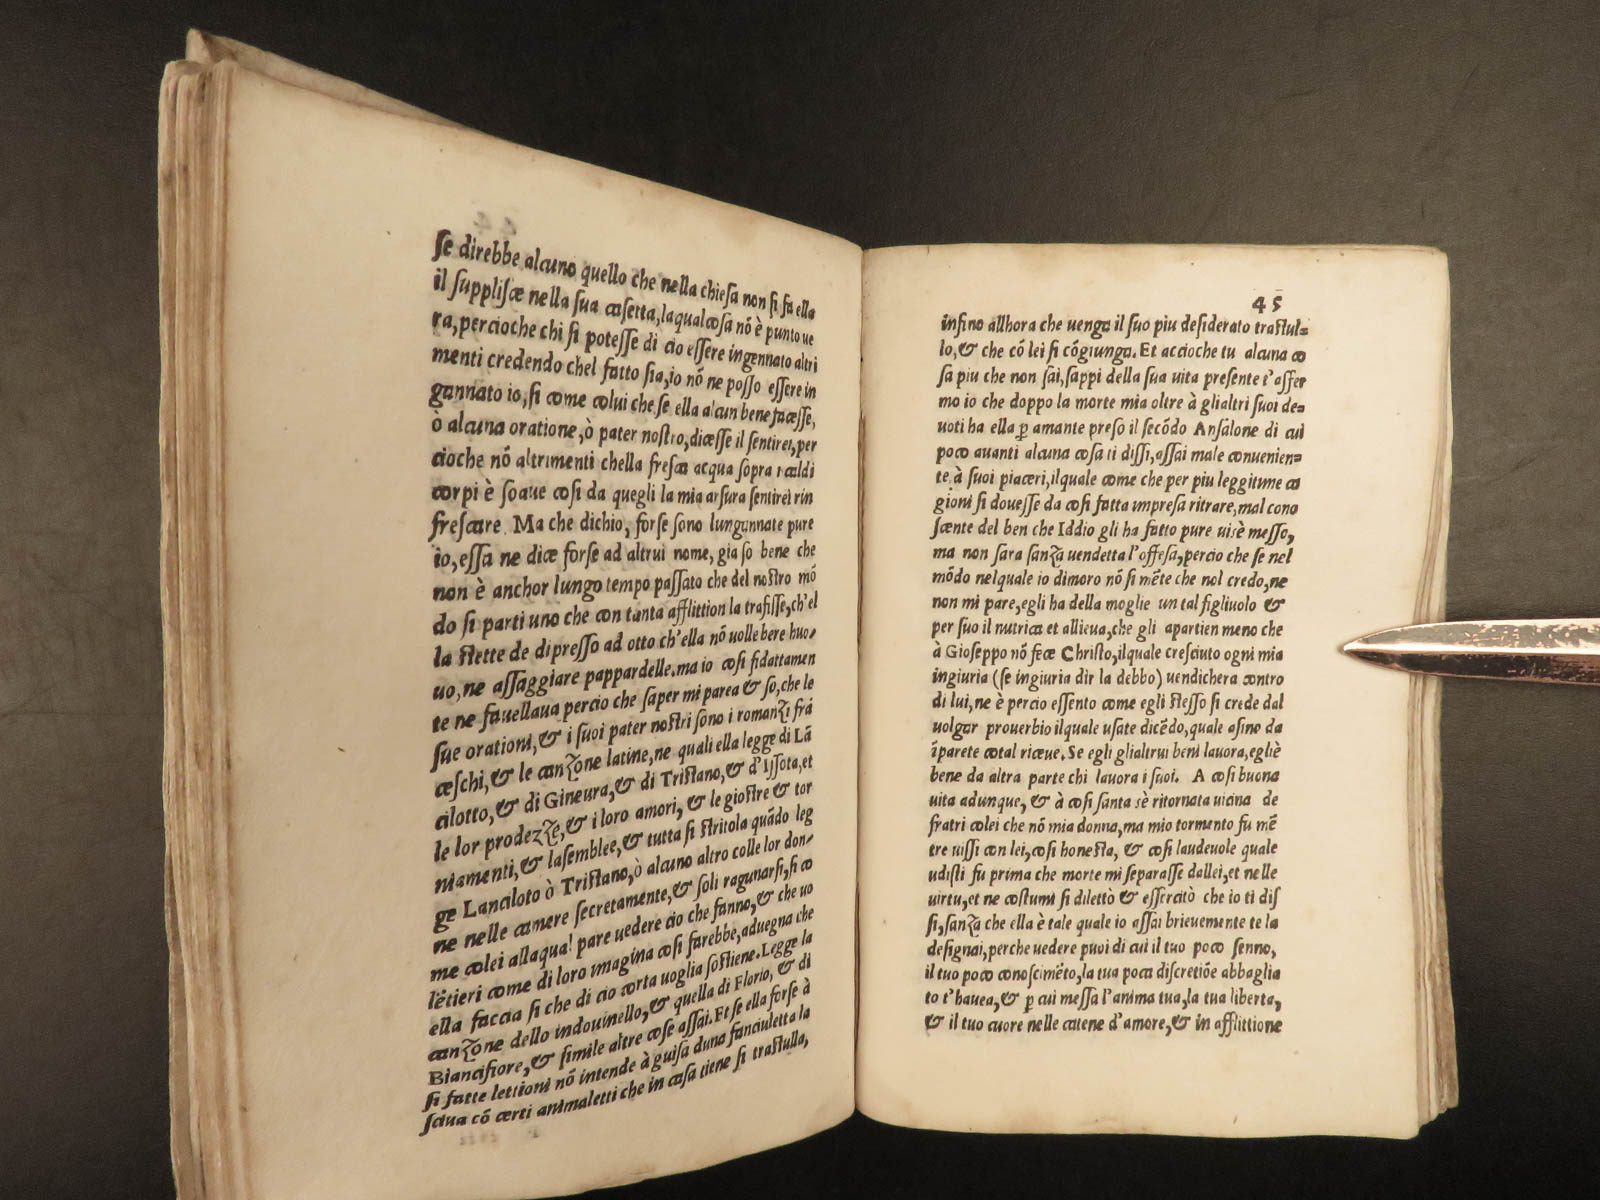 se direbbe alcuno quello che nella chiesa non si fa ella
il supplisce nella sua casetta, laqual cosa nõ è punto ue
ra, percioche chi si potesse di cio essere ingennato altri
menti credendo chel fatto sia, io nõ ne posso essere in
gannato io, si come colui che se ella alcun bene facesse,
ò alcuna oratione, ò pater nostro, dicesse il sentirei, per
cioche nõ altrimenti chella fresca acqua sopra i caldi
corpi è soaue cosi da quegli la mia arsura sentirei rin
frescare. Ma che dichio, forse sono lungannate pure
io, essa ne dice forse ad altrui nome, gia so bene che
non è anchor lungo tempo passato che del nostro mõ
do si parti uno che con tanta afflittion la trafisse, ch'el
la stette de dipresso ad otto ch'ella nõ uolle bere huo-
uo, ne assaggiare pappardelle, ma io cosi fidattamen
te ne fauellaua percio che saper mi parea & so, che le
sue orationi, & i suoi pater nostri sono i romanzi frã
ceschi, & le canzone latine, ne quali ella legge di Lã
cilotto, & di Gineura, & di Tristano, & d'Issota, et
le lor prodezze, & i loro amori, & le giostre & tor
niamenti, & lasemblee, & tutta si stritola quãdo leg
ge Lanciloto ò Tristano, ò alcuno altro colle lor don-
ne nelle camere secretamente, & soli ragunarsi, si co
me colei allaqual pare uedere cio che fanno, & che uo
lẽtieri come di loro imagina cosi farebbe, aduegna che
ella faccia si che di cio corta uoglia sostiene. Legge la
canzone dello indouinello, & quella di Florio, & di
Biancifiore, & simile altre cose assai. Et se ella forse à
si fatte lettioni nõ intende à guisa duna fanciuletta la
sciua cõ certi animaletti che in casa tiene si trastulla,
45
infino allhora che uenga il suo piu desiderato trastul=
lo, & che cõ lei si cõgiunga. Et accioche tu alcuna co
sa piu che non sai, sappi della sua uita presente t'affer
mo io che doppo la morte mia oltre à glialtri suoi de=
uoti ha ella ꝑ amante preso il secõdo Ansalone di cui
poco auanti alcuna cosa ti dissi, assai male conuenien=
te à suoi piaceri, ilquale come che per piu leggitime ca
gioni si douesse da cosi fatta impresa ritrare, mal cono
scente del ben che Iddio gli ha fatto pure uisè messo,
ma non sara sanza uendetta l'offesa, percio che se nel
mõdo nelquale io dimoro nõ si mẽte che nol credo, ne
non mi pare, egli ha della moglie un tal figliuolo &
per suo il nutrica et allieua, che gli apartien meno che
à Gioseppo nõ fece Christo, ilquale cresciuto ogni mia
ingiuria (se ingiuria dir la debbo) uendichera contro
di lui, ne è percio essento come egli stesso si crede dal
uolgar prouerbio ilquale usate dicẽdo, quale asino da
ĩparete cotal riceue. Se egli glialtrui beni lauora, egliè
bene da altra parte chi lauora i suoi. A cosi buona
uita adunque, & à cosi santa sè ritornata uicina de
fratri colei che nõ mia donna, ma mio tormento fu mẽ
tre uissi con lei, cosi honesta, & cosi laudeuole quale
udisti fu prima che morte mi separasse dallei, et nelle
uirtu, et ne costumi si dilettò & essercitò che io ti dis
si, sanza che ella è tale quale io assai brieuemente te la
designai, perche uedere puoi di cui il tuo poco senno,
il tuo poco conoscimẽto, la tua poca discretiõe abbaglia
to t'hauea, & ꝑ cui messa l'anima tua, la tua liberta,
& il tuo cuore nelle catene d'amore, & in afflittione